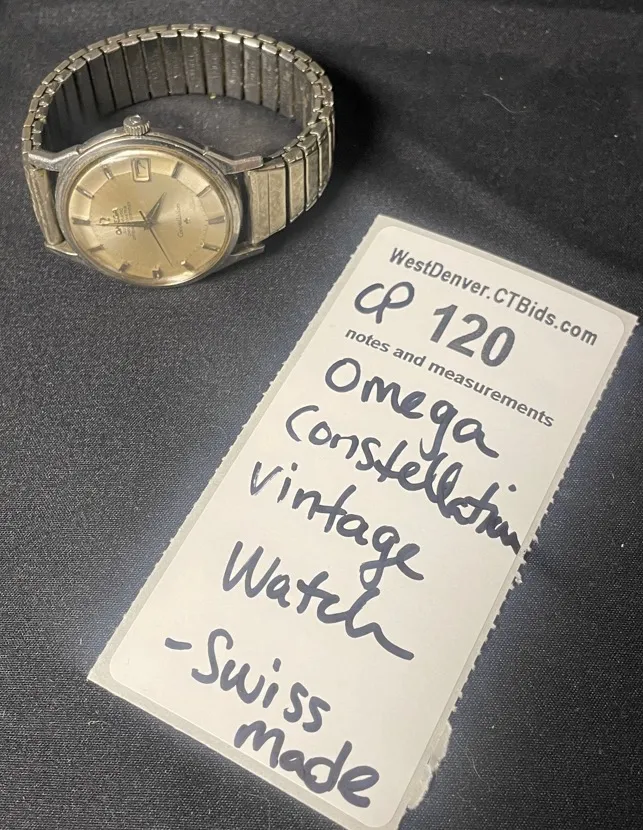 OMEGA
Constellation
WestDenver.CTBids.com
CP 120
notes and measurements
Omega
Constellation
vintage
Watch
-Swiss
made